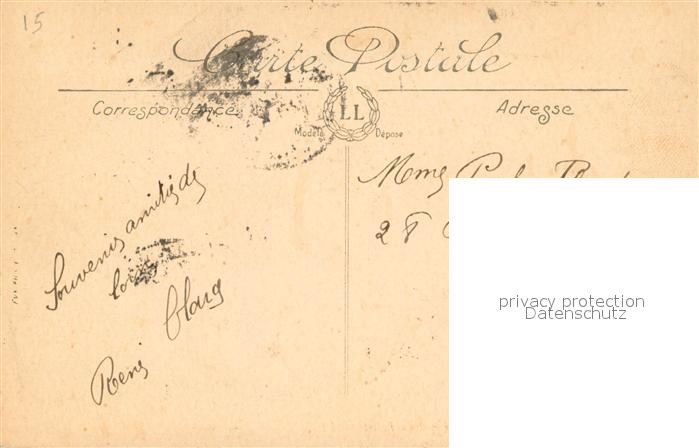 15
Carte Postale
Correspondance
LL
Adresse
Modèle Déposé
Souvenirs amitiés de
loin
René
Mme
28
privacy protection
Datenschutz